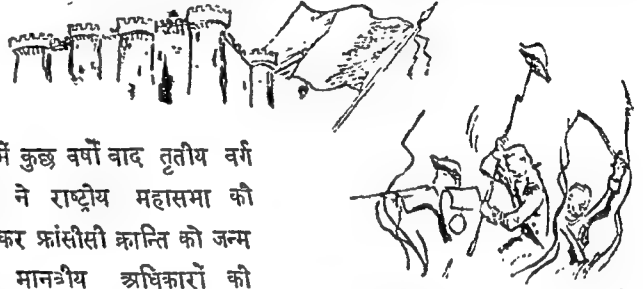 में कुछ वर्षों वाद तृतीय वर्ग
ने राष्ट्रीय महासभा की
कर फ्रांसीसी क्रान्ति को जन्म
मानवीय अधिकारों की